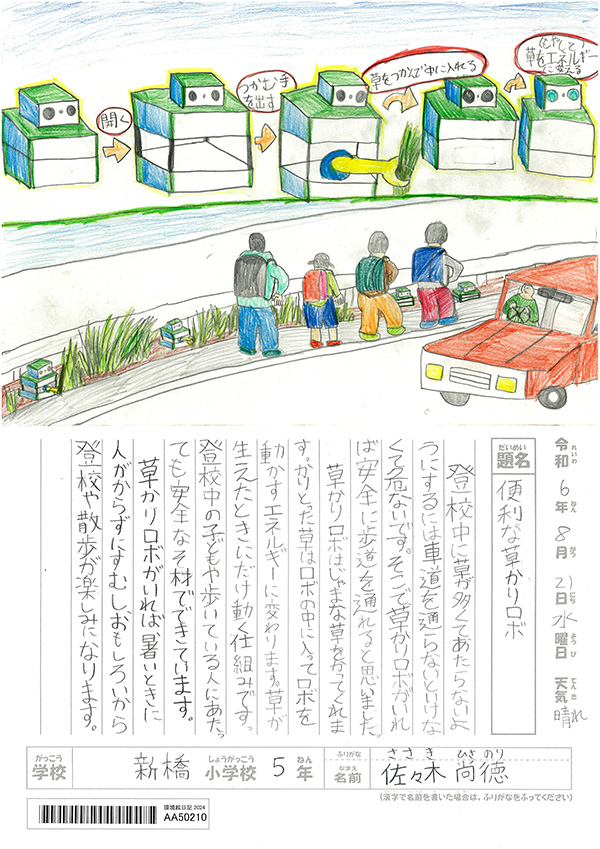 開く
つかむ手
を出す
草をつかんで中に入れる
もやして
草をエネルギー
に変える
令和 れいわ 6年 ねん 8月 がつ 21日 にち 水曜日 ようび 天気 てんき 晴れ
だいめい
題名
便利な草かりロボ
登校中に草が多くてあたらないよ
うにするには車道を通らないといけな
くて危ないです。そこで草かりロボがいれ
ば安全に歩道を通れると思いました。
草かりロボはじゃまな草を夯ってくれま
す。かりとった草はロボの中に入ってロボを
動かすエネルギーに変わります。草が
生えたときにだけ動く仕組みです。
登校中の子どもや歩いている人にあたっ
ても安全なそ材でできています。
草かりロボがいれば、暑いときに
人がからずにすむし、おもしろいから
登校や散歩が楽しみになります。
がっこう しょうがっこう ねん
学校 新橋 小学校 5 年
ふりがな ささき ひさのり
なまえ
名前 佐々木 尚徳
(漢字で名前を書いた場合は、ふりがなをふってください)
環境絵日記2024
AA50210